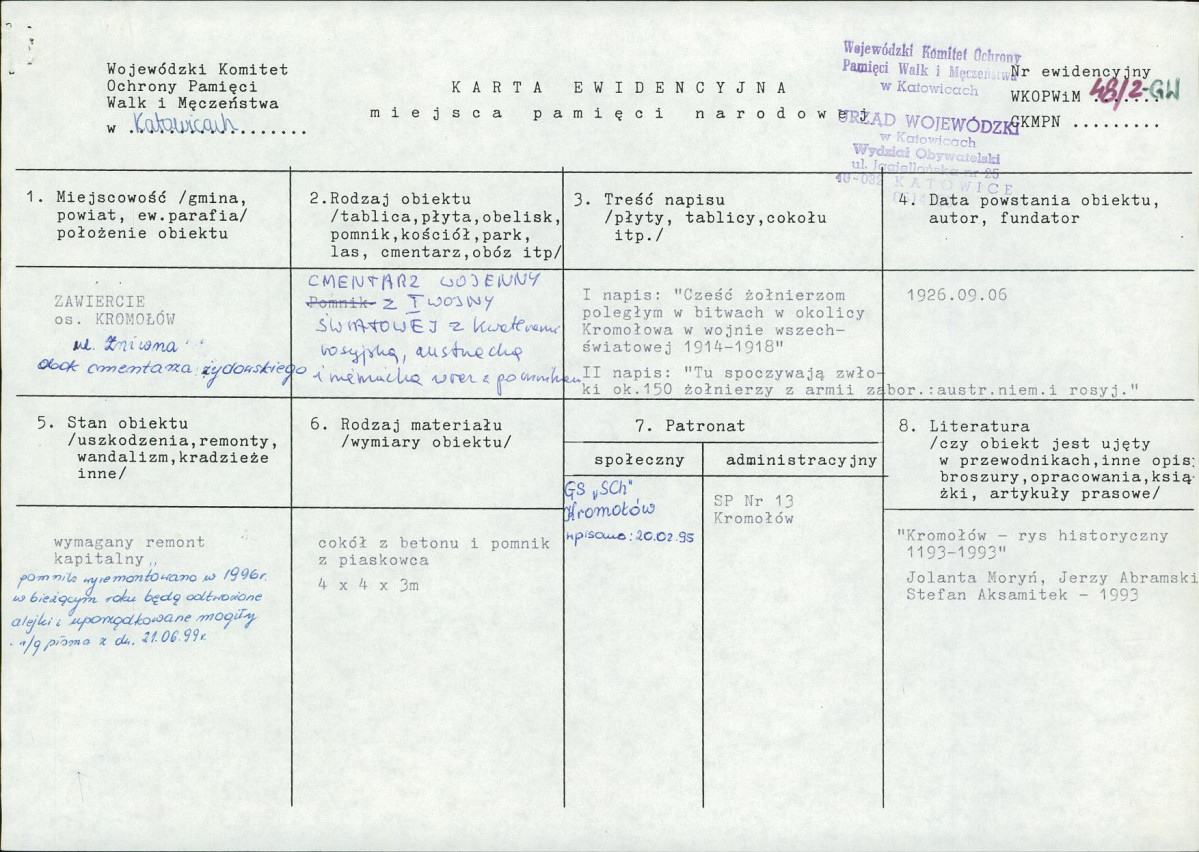 Wojewódzki Komitet
Ochrony Pamięci
Walk i Męczeństwa
w .Katowicach.......
KARTA EWIDENCYJNA
miejsca pamięci narodowej
Wojewódzki Komitet Ochrony
Pamięci Walk i Męczeństwa
w Katowicach
URZĄD WOJEWÓDZKI
w Katowicach
Wydział Obywatelski
ul. Jagiellońska nr 25
40-032 KATOWICE
Nr ewidencyjny
WKOPWiM 48/2-GW
GKMPN .........
1. Miejscowość /gmina,
powiat, ew.parafia/
położenie obiektu
2.Rodzaj obiektu
/tablica,płyta,obelisk,
pomnik,kościół,park,
las, cmentarz,obóz itp/
3. Treść napisu
/płyty, tablicy,cokołu
itp./
4. Data powstania obiektu,
autor, fundator
ZAWIERCIE
os. KROMOŁÓW
ul. Żniwna
obok cmentarza żydowskiego
CMENTARZ WOJENNY
Pomnik z I WOJNY
ŚWIATOWEJ z kwaterami
rosyjską, austriacką
i niemiecką wraz z pomnikiem
I napis: "Cześć żołnierzom
poległym w bitwach w okolicy
Kromołowa w wojnie wszech-
światowej 1914-1918"
II napis: "Tu spoczywają zwło-
ki ok.150 żołnierzy z armii zabor.:austr.niem.i rosyj."
1926.09.06
5. Stan obiektu
/uszkodzenia,remonty,
wandalizm,kradzieże
inne/
6. Rodzaj materiału
/wymiary obiektu/
7. Patronat
społeczny
administracyjny
8. Literatura
/czy obiekt jest ujęty
w przewodnikach,inne opis
broszury,opracowania,ksią
żki, artykuły prasowe/
wymagany remont
kapitalny
pomnik wyremontowano w 1996r.
w bieżącym roku będą odtworzone
alejki i uporządkowane mogiły
w/g pisma z dn. 21.06.99r.
cokół z betonu i pomnik
z piaskowca
4 x 4 x 3m
GS „SCh"
Kromołów
wpisano: 20.02.95
SP Nr 13
Kromołów
"Kromołów - rys historyczny
1193-1993"
Jolanta Moryń, Jerzy Abramski
Stefan Aksamitek - 1993